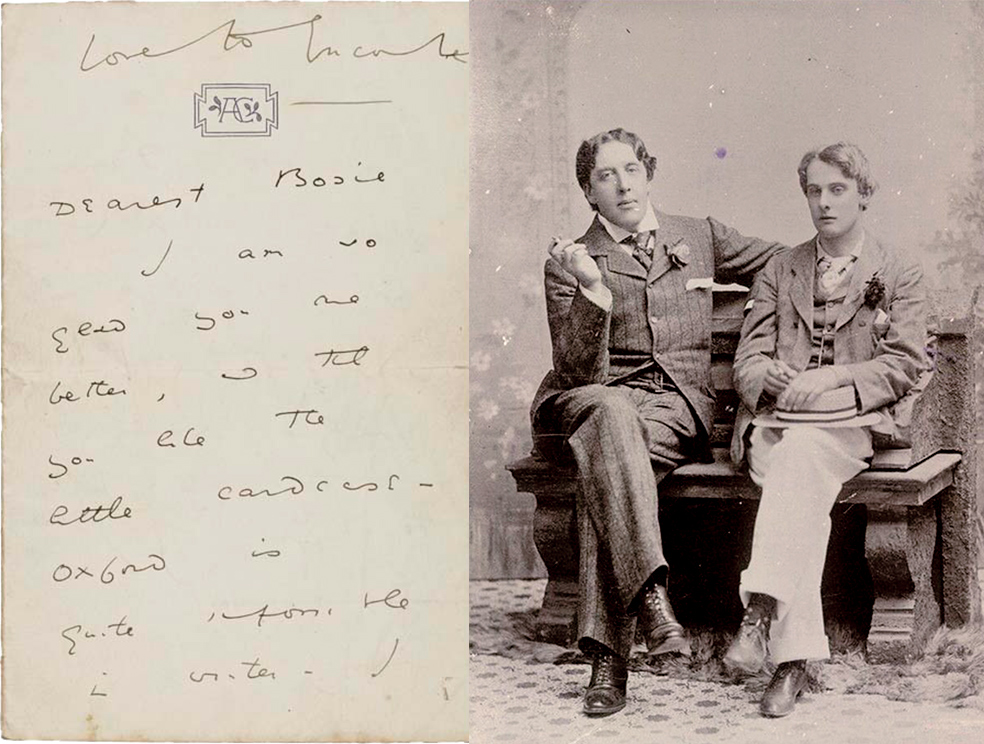 love to Encombe
AC
Dearest Bosie
I am so
glad you are
better, and that
you like the
little cardcase -
Oxford is
quite impossible
in winter - I